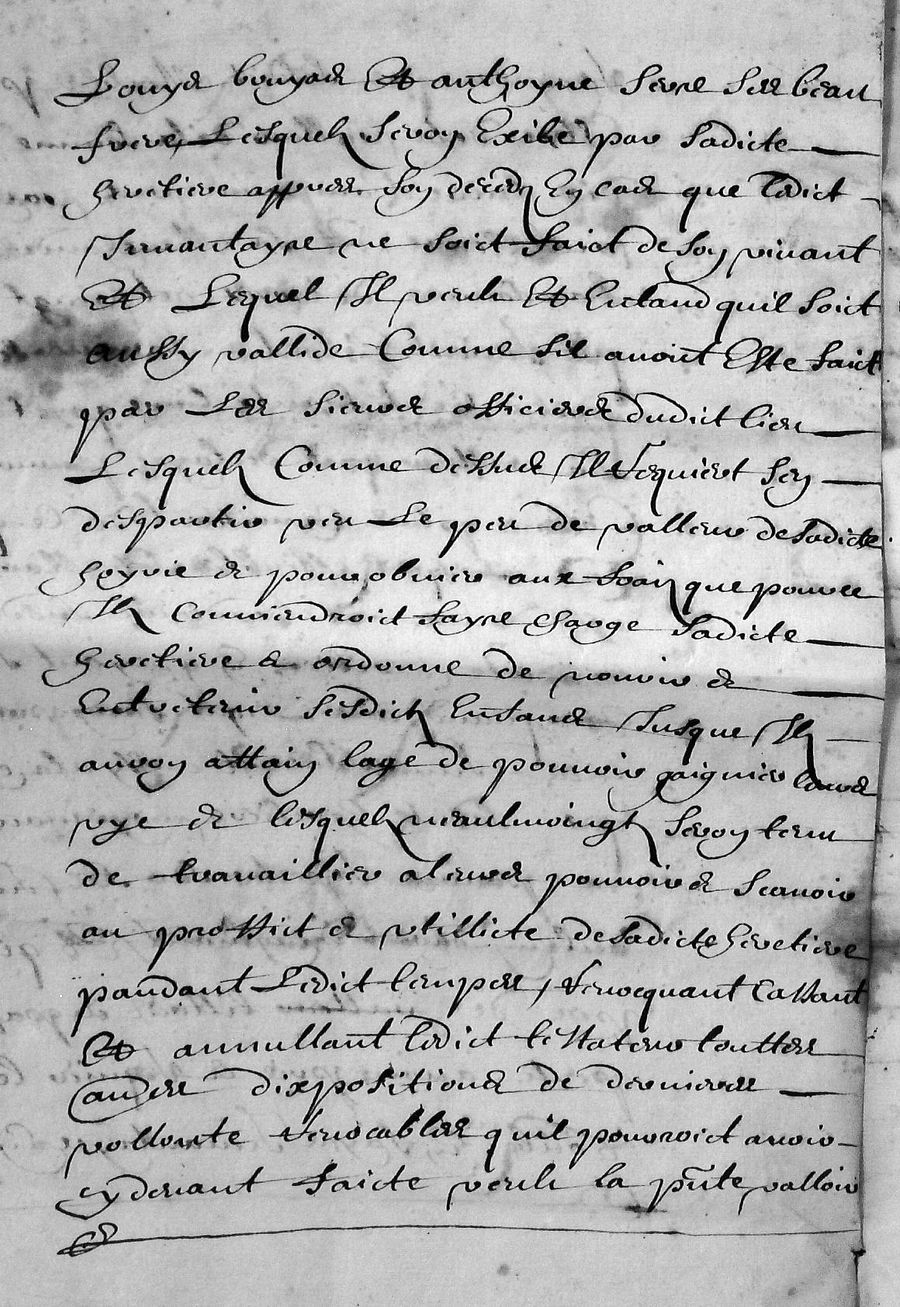 Louys bouyas Et anthoyne serre ses beau
frere, Lesquelz seron Exibé par sadicte
heretiere appres son deces En cas que ledict
Innantayre ne soict faict de son vivant
Et Lequel Il veult Et Entand quil soict
aussy vallide Comme sil avoint Este faict
par Les sieurs officiers dudict lieu
Lesquelz Comme dessus Il requiert sen
despartir veu Le peu de valleur de sadicte
heyrie & pour obvier aux frais que pour ce
Il conviendroict fayre charge sadicte
heretiere & ordonne de nourir &
Entretenir sesdictz Enfans Jusque Ilz
auron attain lage de pouvoir gaignier leurs
vye & lesquelz neaulmoingtz seron tenu
de travaillier a leurs pouvoirs & scavoir
au proffict & utillicte de sadicte heretiere
pandant Ledict temps, revocquant Cassant
Et annullant ledict testateur touttes
aultres dixpositions de dernieres
vollonte revocables quil pourroict avoir
cy devant faicte veult la pnte valloir
&